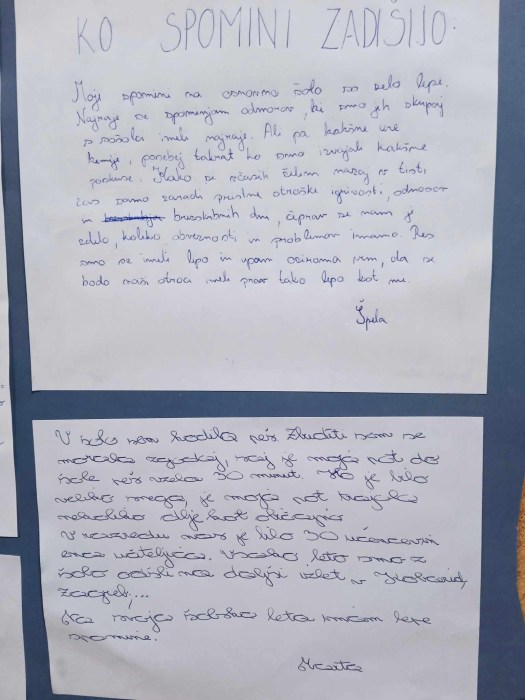 KO SPOMINI ZADIŠIJO.
Moji spomini na osnovno šolo so zelo lepi.
Najraje se spominjam odmorov, ki smo jih skupaj
s sošolci imeli najraje. Ali pa kakšne ure
kemije, posebej takrat ko smo izvajali kakšne
poskuse. Kako se včasih želim nazaj v tisti
čas samo zaradi pristne otroške igrivosti, odnosov
in brezskrbnih dni, čeprav se nam je
zdelo, koliko obveznosti in problemov imamo. Res
smo se imeli lepo in upam oziroma vem, da se
bodo naši otroci imeli prav tako lepo kot mi.
Špela
V šolo sem hodila peš. Zbuditi sem se
morala zgodaj, saj je moja pot do
šole peš vzela 30 minut. Ko je bilo
veliko snega, je moja pot trajala
nekoliko dlje kot običajno.
V razredu nas je bilo 30 učencev in
ena učiteljica. Vsako leto smo z
šolo odšli na daljši izlet v Kobarid,
Zagreb,...
Na svoja šolska leta imam lepe
spomine.